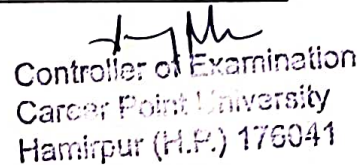 Controller of Examination
Career Point University
Hamirpur (H.P.) 176041